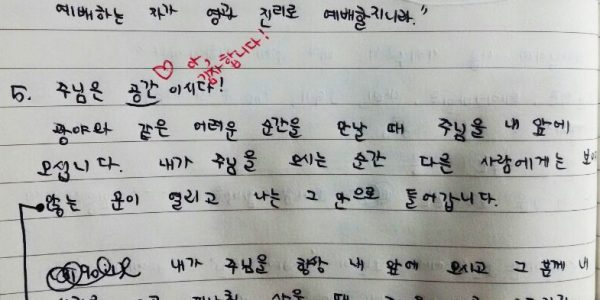 예배하는 자가 영과 진리로 예배할지니라."
♡ 아, 감사합니다!
5. 주님은 공간 이시다!
광야와 같은 어려운 순간을 만날 때 주님을 내 앞에
모십니다. 내가 주님을 모시는 순간 다른 사람에게는 보이
않는 문이 열리고 나는 그 안으로 들어갑니다.
내가 주님을 항상 내 앞에 모시고 그 분께 내